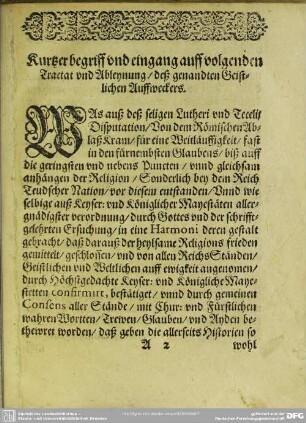 Kurtzer begriff vnd eingang auff volgenden
Tractat vnd Ableynung / deß genandten Geist-
lichen Auffweckers.
WAs auß deß seligen Lutheri vnd Tecelii
Disputation / Von dem Römischen Ab-
laß Kram / für eine Weitläuffigkeit / fast
in den fürnembsten Glaubens / biß auff
die geringsten vnd nebens Puncten / vnnd gleichsam
anhängen der Religion / Sonderlich bey dem Reich
Teudscher Nation / vor diesem entstanden / Vnnd wie
selbige auß Keyser: vnd Königlicher Mayestäten aller-
gnädigster verordnung / durch Gottes vnd der schrifft-
gelehrten Ersuchung / in eine Harmoni deren gestalt
gebracht / daß darauß der heylsame Religions frieden
gemittelt / geschlossen / vnd von allen Reichs Ständen /
Geistlichen vnd Weltlichen auff ewigkeit angenomen /
durch Höchstgedacht Keyser: vnd Königliche Maye-
stetten confirmirt, bestätiget / vnnd durch gemeinen
Consens aller Stände / mit Chur: vnd Fürstlichen
wahren Wortten / Trewen / Glauben / vnd Ayden be-
thewret worden / daß geben die allerseits Historien so
A 2 wohl